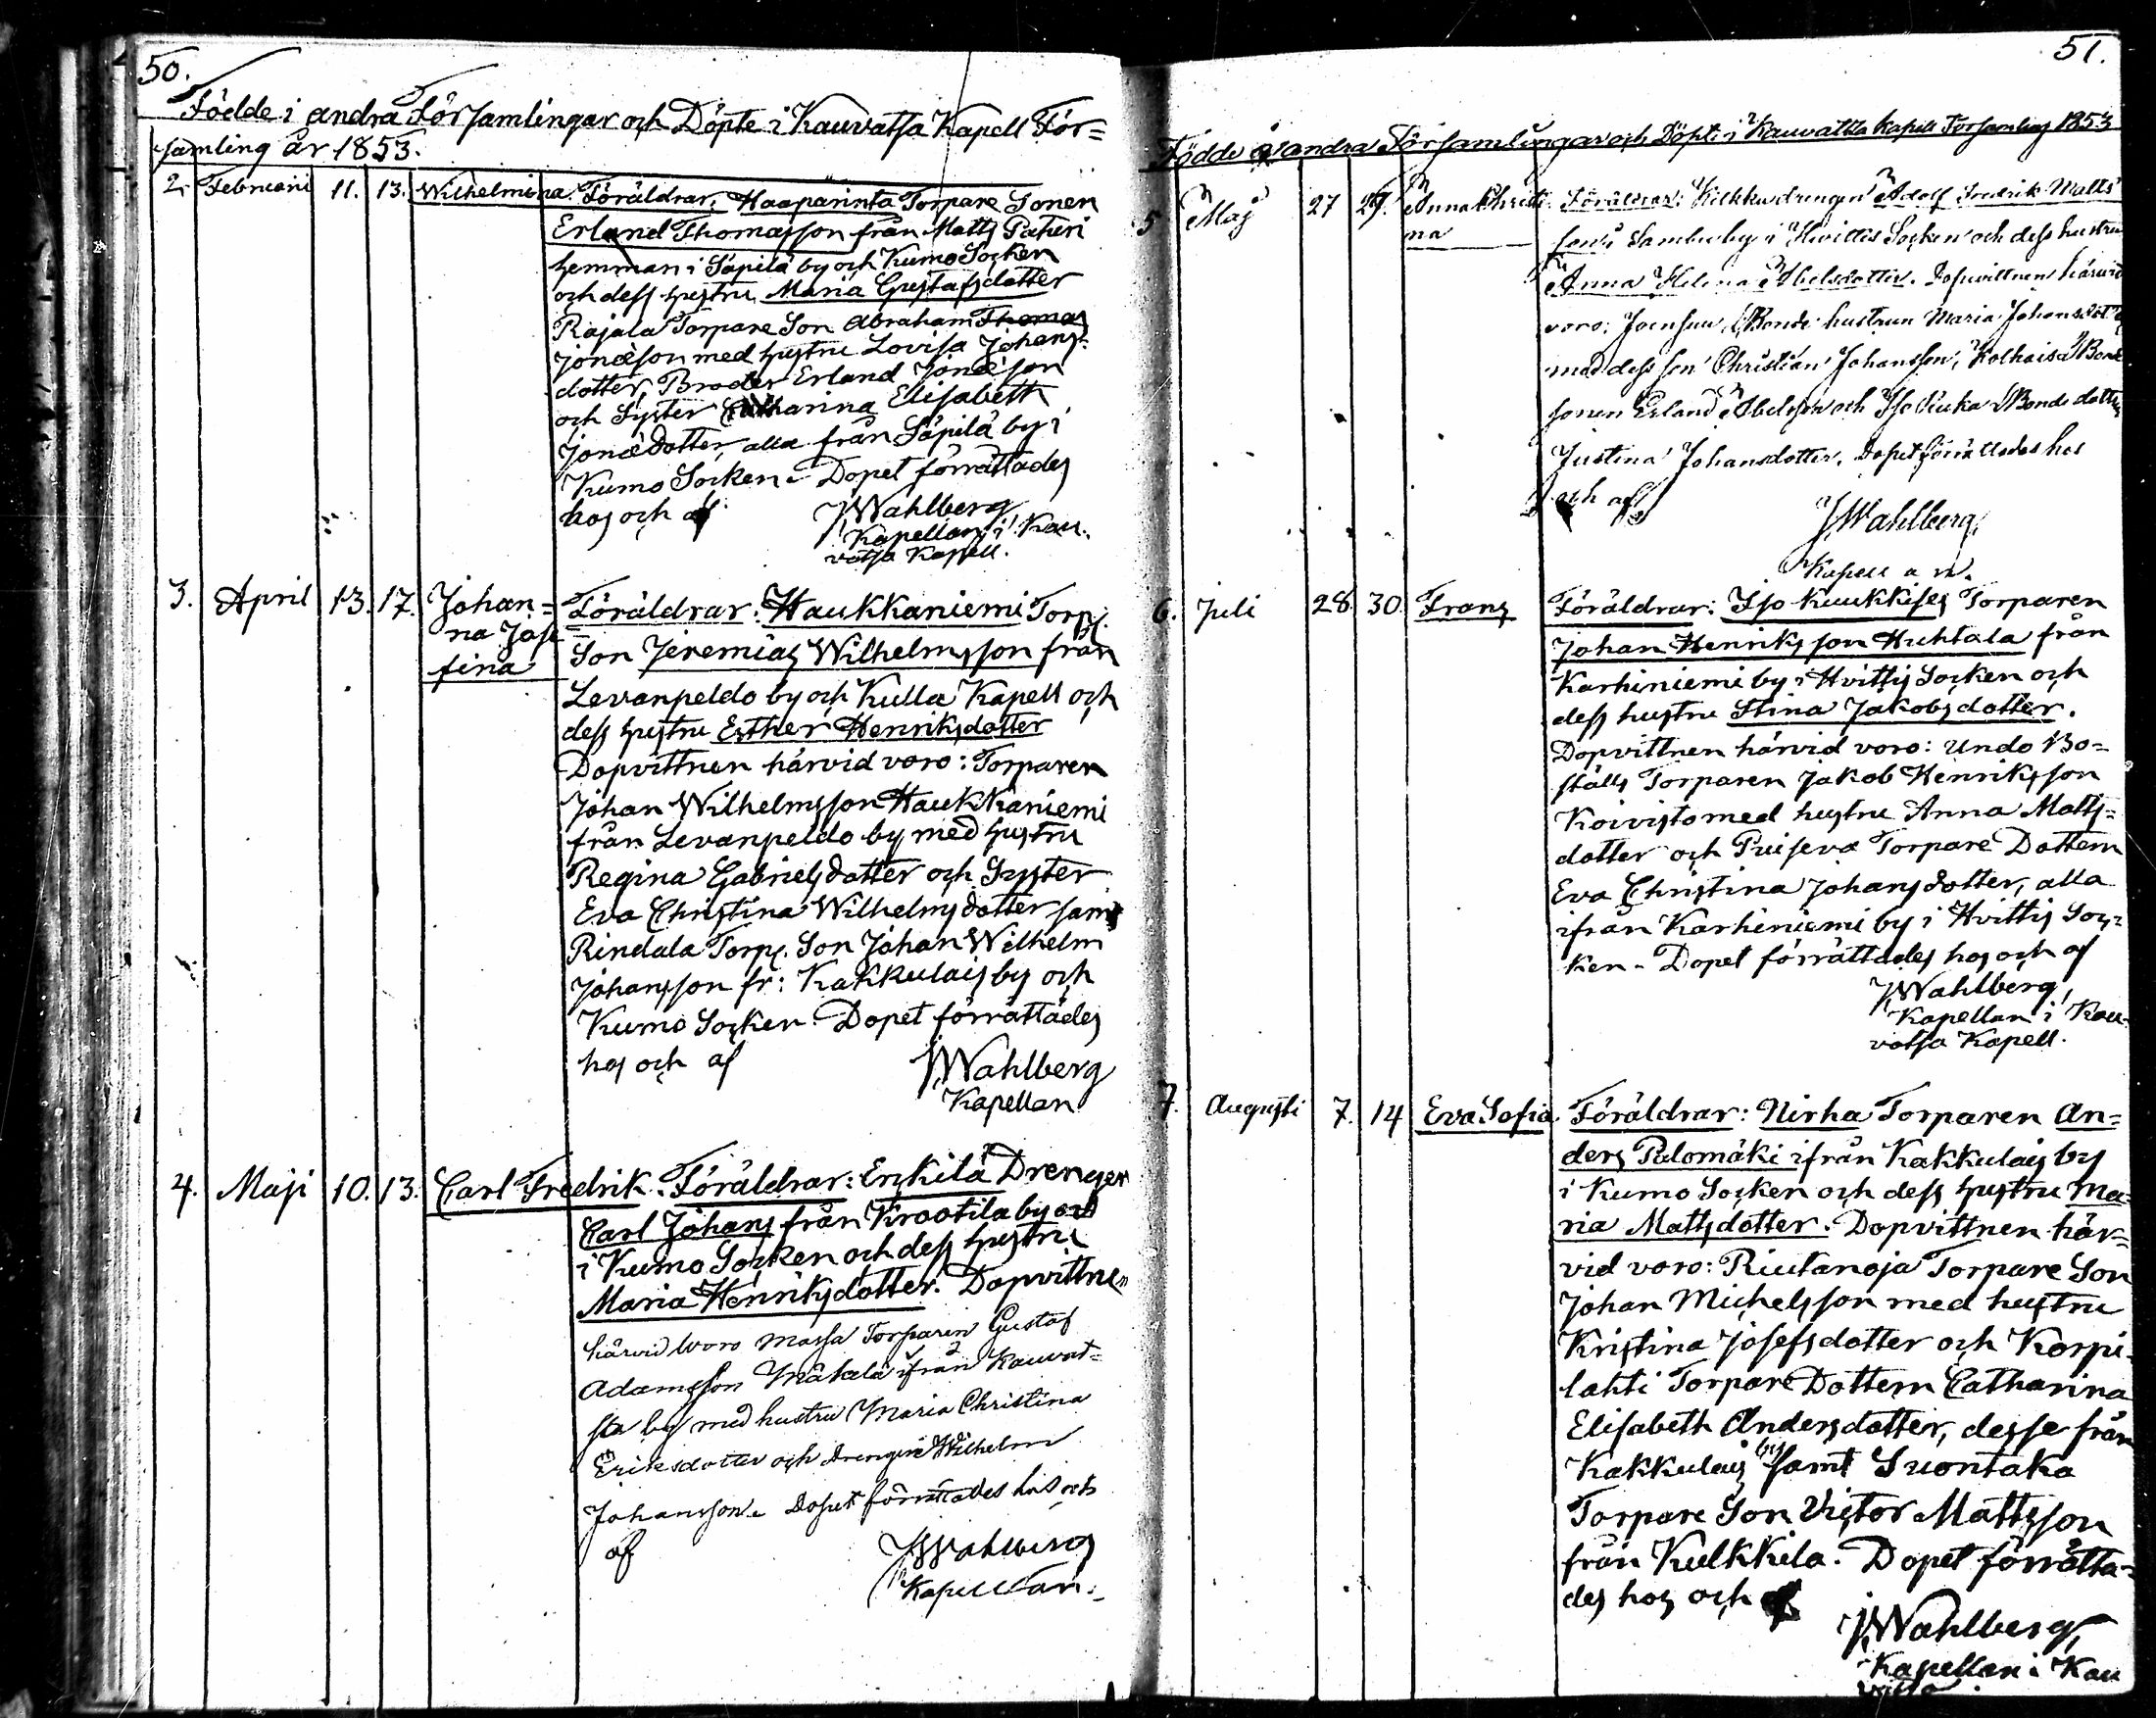 50.
Födde i andra Församlingar och Döpte i Kauvatsa Kapell För=
samling år 1853.
2. Februarii 11. 13. Wilhelmina. Föräldrar: Haaparinta Torpare Sonen
Erland Thomasson från Matts Pateri
hemman i Säpilä by och Kumo Socken
och dess hustru Maria Gustafsdotter
Rajala Torpare Son Abraham Thomas
Jonæson med hustru Lovisa Johans=
dotter, Broder Erland Jonæson
och Syster Catharina Elisabeth
Jonædotter, alla från Säpilä by i
Kumo Socken. Dopet förrättades
hos och af JWahlberg
Kapellan i Kau=
vatsa Kapell.
3. April 13. 17. Johan= Föräldrar: Haukkaniemi Torp.
na Jose Son Jeremias Wilhelmsson från
fina Levanpeldo by och Kulla Kapell och
dess hustru Esther Henriksdotter
Dopvittnen härvid voro: Torparen
Johan Wilhelmsson Haukkaniemi
från Levanpeldo by med hustru
Regina Gabrielsdotter och Syster
Eva Christina Wilhelmsdotter samt
Rindala Torp. Son Johan Wilhelm
Johansson fr: Kakkulais by och
Kumo Socken. Dopet förrättades
hos och af JWahlberg
Kapellan
4. Maji 10. 13. Carl Fredrik. Föräldrar: Erkilä Drengen
Carl Johans från Krootila by och
i Kumo Socken och dess hustru
Maria Henriksdotter. Dopvittnen
härvid woro Massa Torparen Gustaf
Adamsson Mäkelä ifrån Kauvat=
sa by med hustru Maria Christina
Eriksdotter och drengen Wilhelm
Johansson. Dopet förrättades hos och
af JWahlberg
Kapellan.
51.
Födde i andra Församlingar och Döpte i Kauvatsa kapell Forsamling 1853
5 Maj 27 29. Anna Christi= Föräldrar: Kilkku drengen Adolf Fredrik Matts
na son i Sambu by i Hvittis Socken och dess hustru
Anna Helena Abelsdotter. Dopvittnen härvid
voro: Joensuu Bonde hustrun Maria Johansdotter
med dess son Christian Johansson, Kolhaisa Bonde
sonen Erland Abelsson och Bonde dotter
Justina Johansdotter. Dopet förrättades hos
och af
JWahlberg
Kapell a n.
6. Juli 28. 30. Frans Föräldrar: Iso Kuukkises Torparen
Johan Henriksson Huhtala från
Karhiniemi by i Hvittis Socken och
dess hustru Stina Jakobsdotter.
Dopvittnen härvid voro: Undo Bo=
ställs Torparen Jakob Henriksson
Koivisto med hustru Anna Matts=
dotter och Puiseva Torpare Dottern
Eva Christina Johansdotter, alla
ifrån Karhiniemi by i Hvittis Soc=
ken. Dopet förrättades hos och af
JWahlberg,
Kapellan i Kau=
vatsa Kapell.
7. Augusti 7. 14 Eva Sofia Föräldrar: Nirha Torparen An=
ders Palomäki ifrån Kakkulais by
i Kumo Socken och dess hustru Ma=
ria Mattsdotter. Dopvittnen här=
vid voro: Riutanoja Torpare Son
Johan Michelsson med hustru
Kristina Josefsdotter och Korpi=
lahti Torpare Dottern Catharina
Elisabeth Andersdotter, desse från
Kakkulais by samt Suontaka
Torpare Son Victor Mattsson
från Kulkkila. Dopet förrätta=
des hos och af
JWahlberg,
Kapellan i Kau
vatsa.